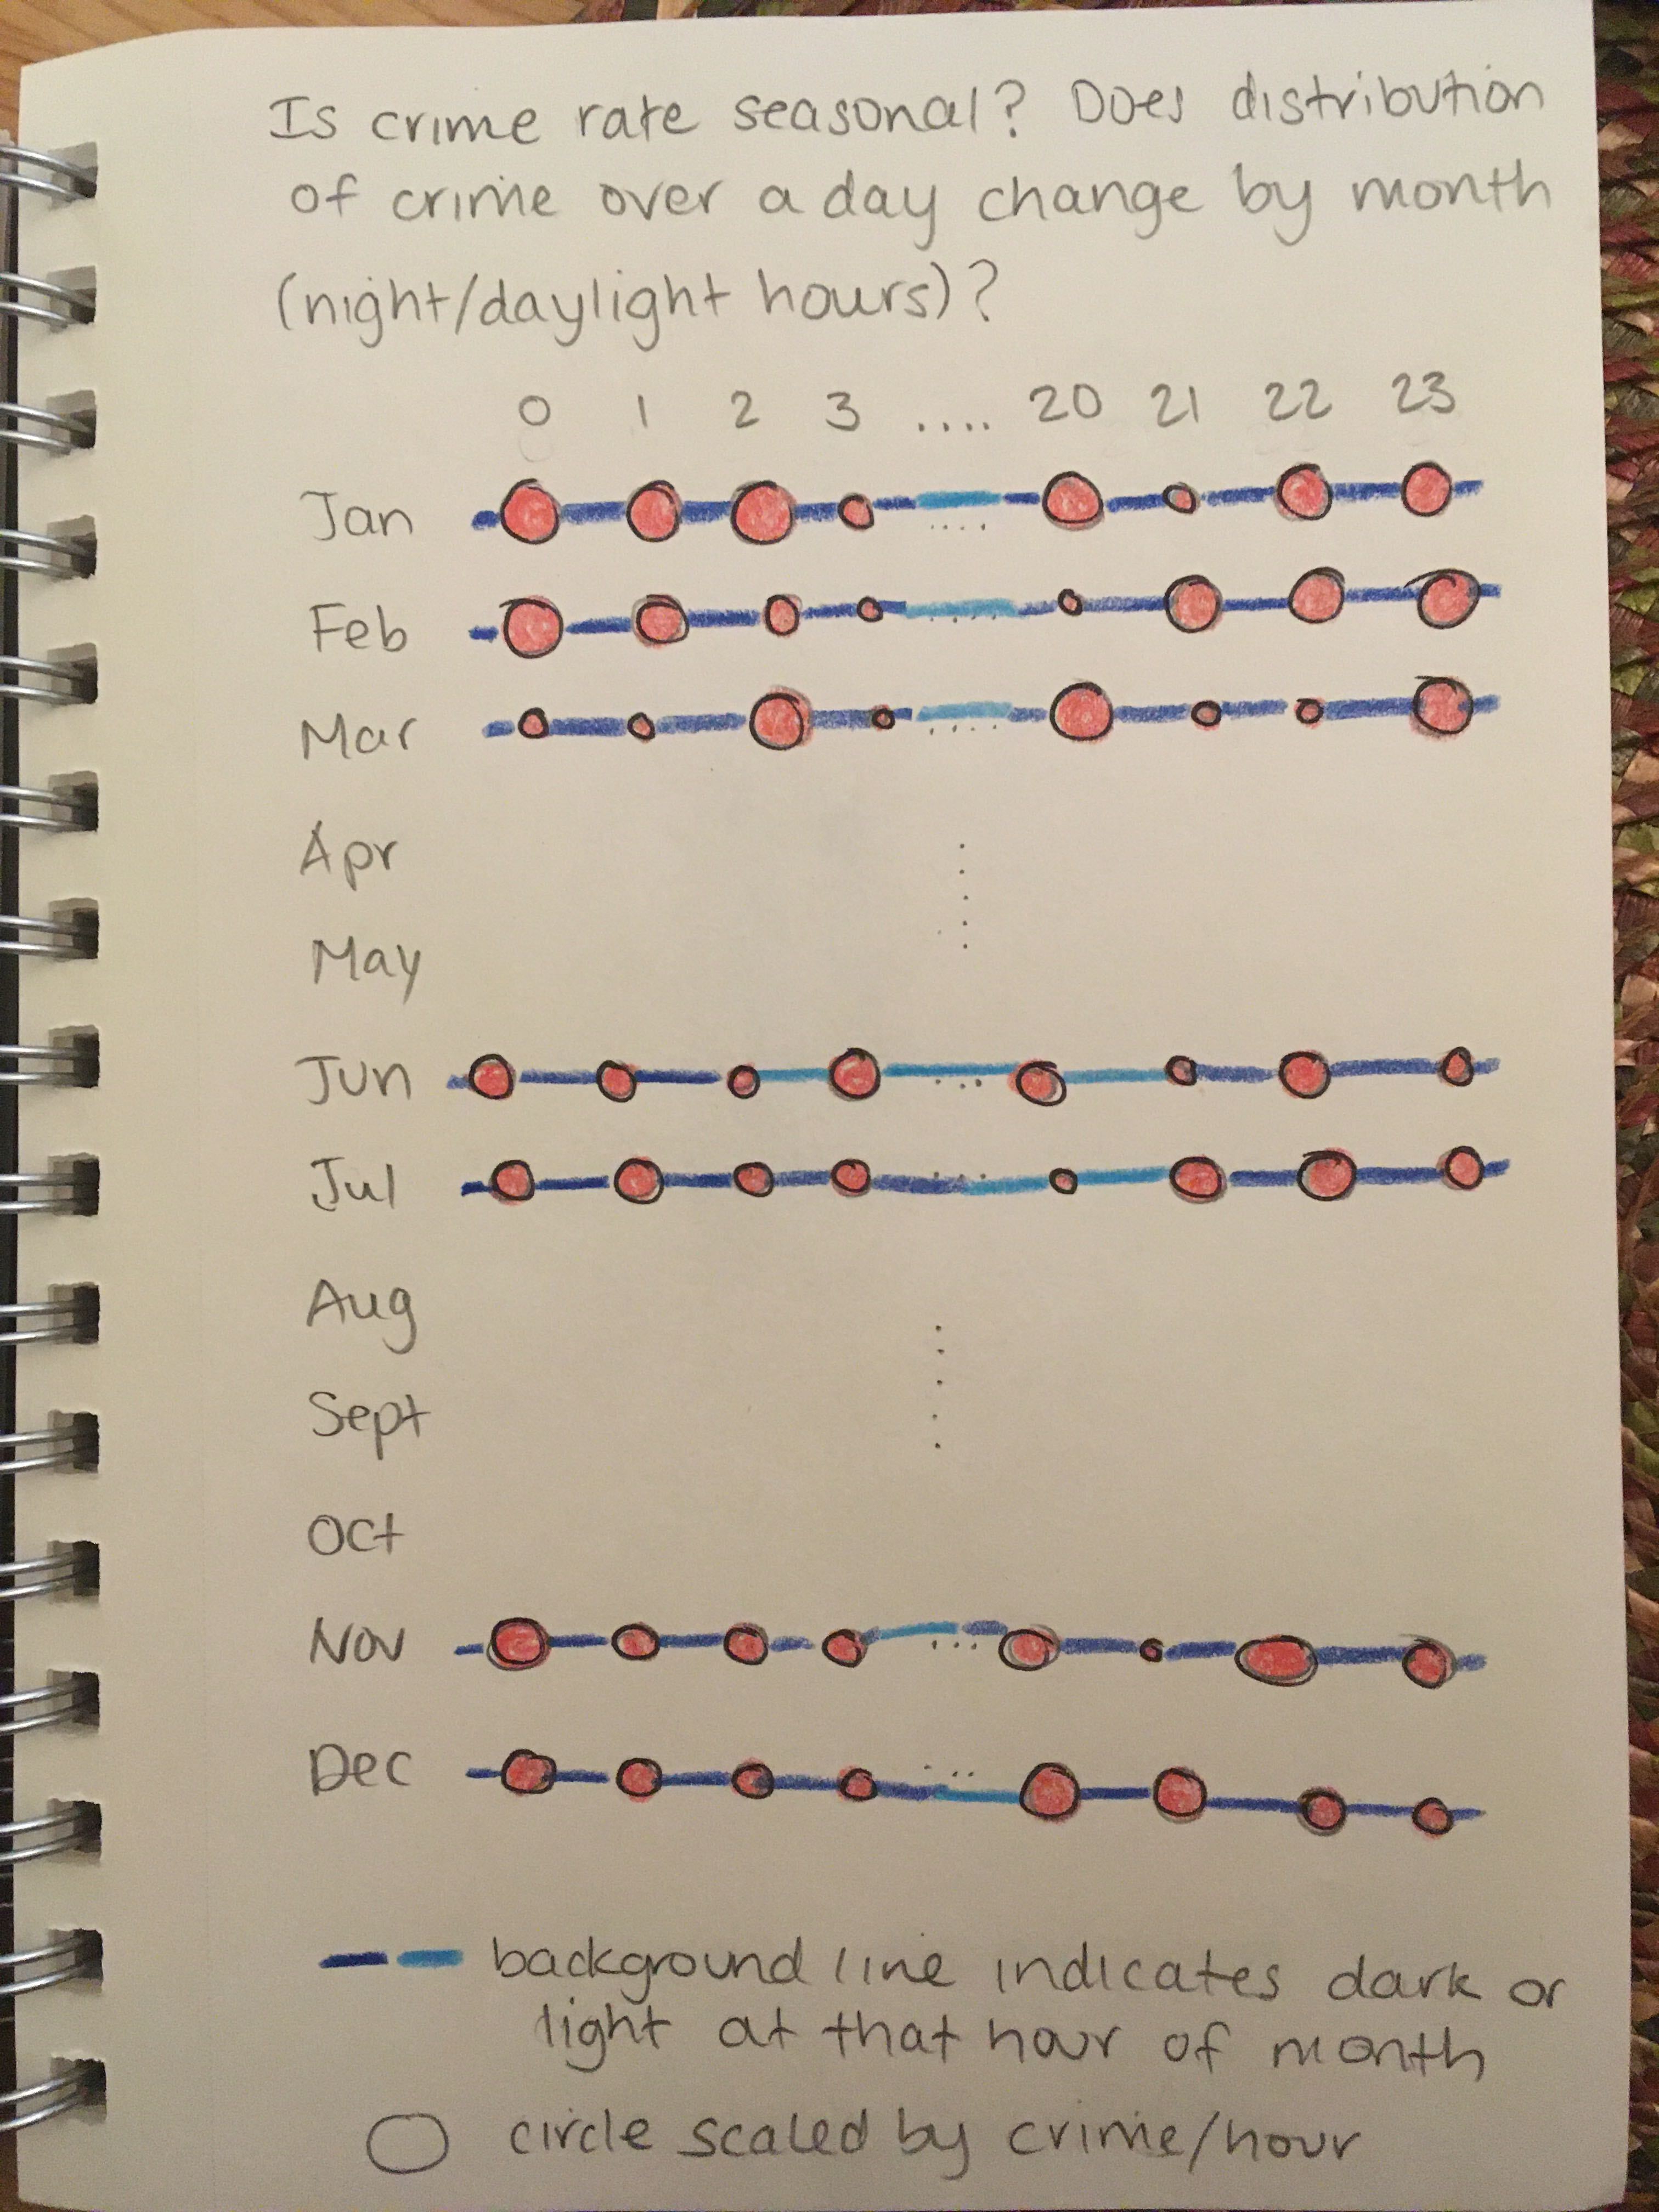 Is crime rate seasonal? Does distribution
of crime over a day change by month
(night/daylight hours)?
0 1 2 3 .... 20 21 22 23
Jan ....
Feb ....
Mar ....
Apr
May
Jun ....
Jul ....
Aug
Sept
Oct
Nov ....
Dec ....
background line indicates dark or
light at that hour of month
circle scaled by crime/hour